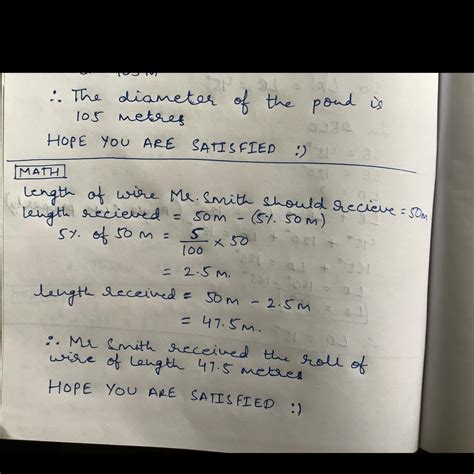 ∴ The diameter of the pond is
105 metres
HOPE YOU ARE SATISFIED :)
MATH
length of wire Mr. Smith should recieve = 50m
length recieved = 50m - (5% 50m)
5% of 50 m = 5/100 × 50
= 2.5 m.
length received = 50m - 2.5m
= 47.5m.
∴ Mr Smith received the roll of
wire of length 47.5 metres
HOPE YOU ARE SATISFIED :)